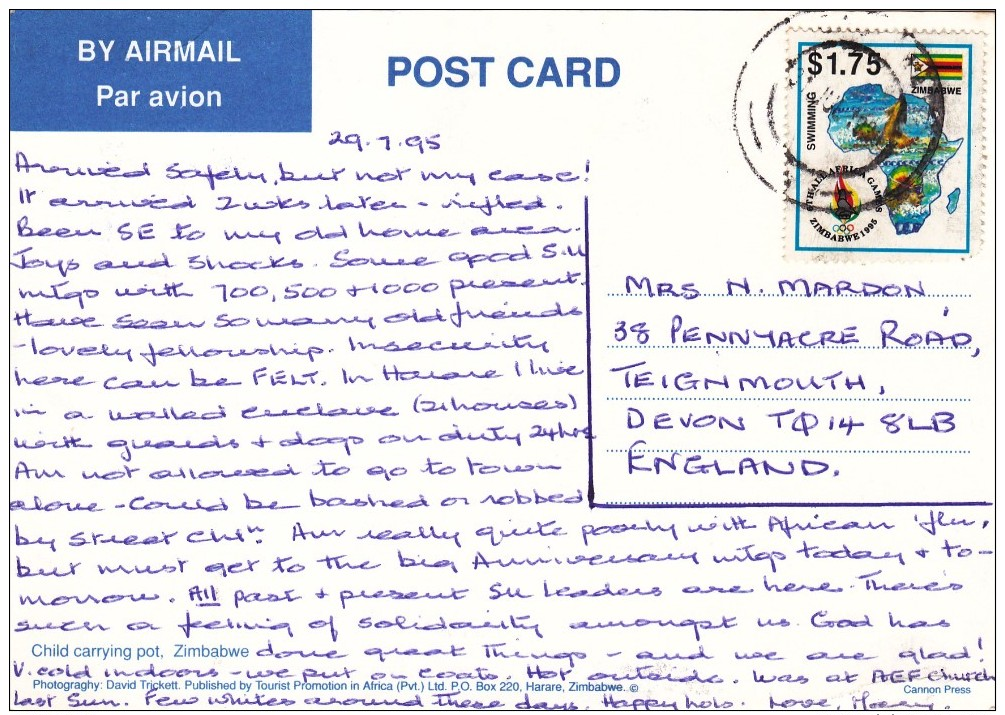 BY AIRMAIL
Par avion
POST CARD
$1.75
ZIMBABWE
SWIMMING
6TH ALL AFRICA GAMES
ZIMBABWE 1995
29.7.95
Arrived safely, but not my case!
It arrived 2 wks later - rifled.
Been SE to my old home area.
Joys and shocks. Some good S.U
mtgs with 700, 500 + 1000 present.
Have seen so many old friends
- lovely fellowship. Insecurity
here can be FELT. In Harare I live
in a walled enclave (21 houses)
with guards + dogs on duty 24 hrs
Am not allowed to go to town
alone - could be bashed or robbed
by street chln. Am really quite poorly with African 'flu,
but must get to the big Anniversary mtgs today + to-
morrow. All past + present SU leaders are here. There's
such a feeling of solidarity amongst us. God has
done great things - and we are glad!
V. cold indoors - we put on coats. Hot outside. Was at AEF Church
last Sun. Few whites around these days. Happy hols. Love,
MRS N. MARDON
38 PENNYACRE ROAD,
TEIGNMOUTH,
DEVON TQ14 8LB
ENGLAND.
Child carrying pot, Zimbabwe
Photograghy: David Trickett. Published by Tourist Promotion in Africa (Pvt.) Ltd. P.O. Box 220, Harare, Zimbabwe. ©
Cannon Press